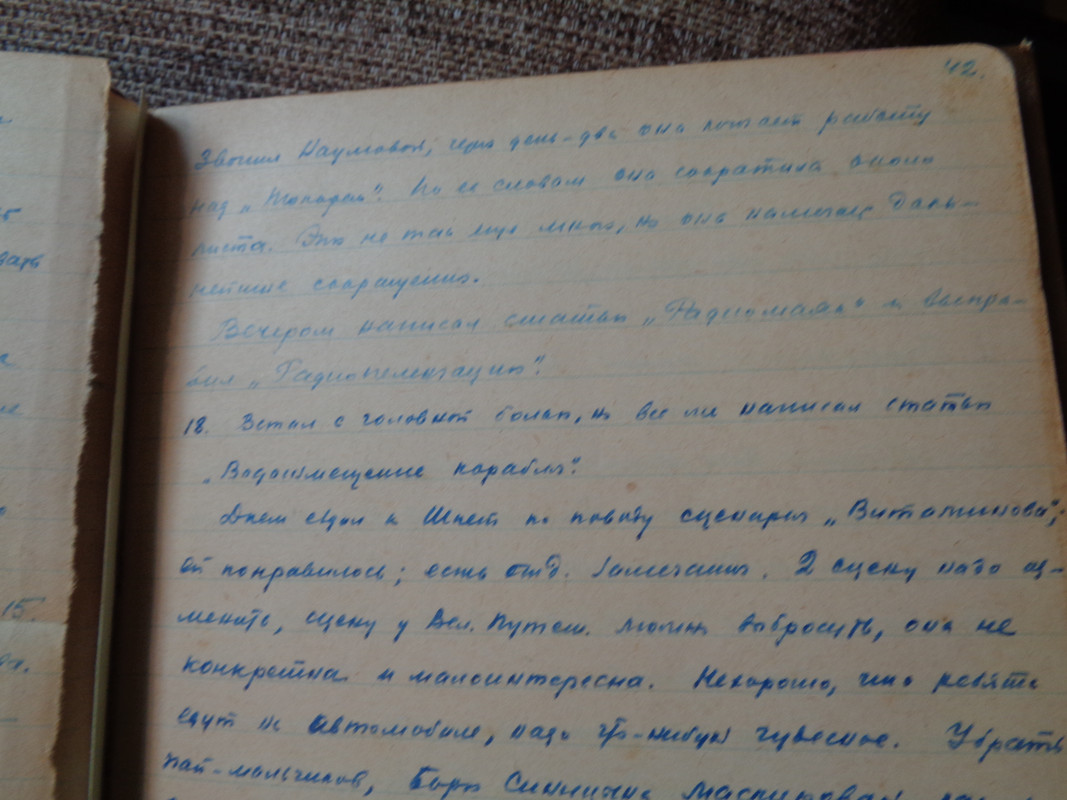 42.
Звонил Наумовой; через день-два она кончает работу
над „Топором“. По ее словам она сократила около
листа. Это не так уж много, но она намечает даль-
нейшие сокращения.
Вечером написал статью „Радиомаяк“ и выпра-
вил „Радиопеленгацию“.
18. Встал с головной болью, но все же написал статью
„Водоизмещение корабля“.
Днем ездил к Шпет по поводу сценария „Витаминова“;
ей понравилось; есть отд. замечания. 2 сцену надо из-
менить, сцену у Вел. Путеш. можно выбросить, она не
конкретна и малоинтересна. Нехорошо, что ребята
едут на автомобиле, надо что-нибудь чудесное. Убрать
пай-мальчиков, Борю Синицына
15.